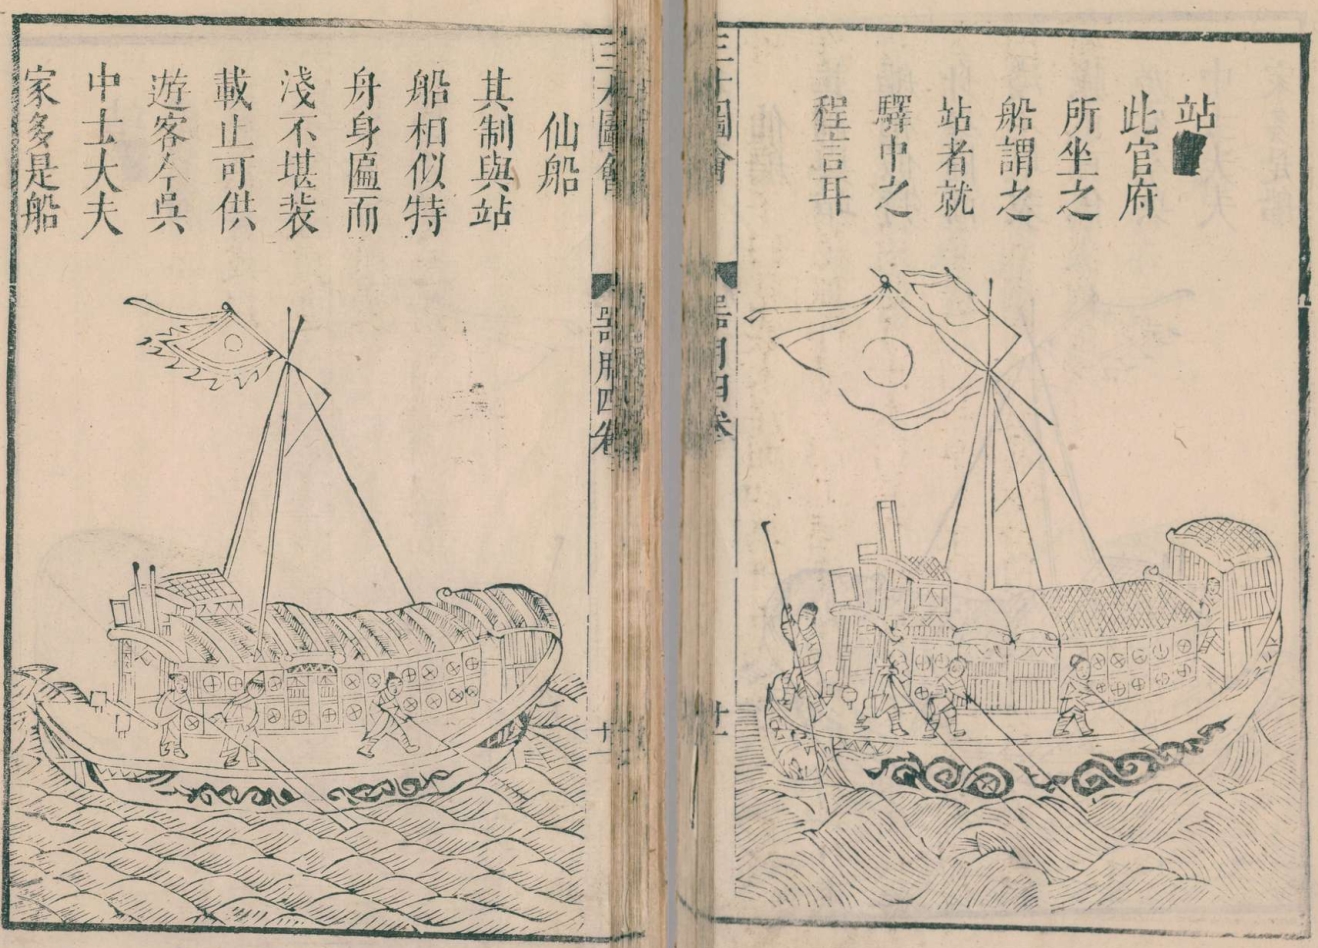 站
此官府
所坐之
船謂之
站者就
驛中之
程言耳
三才圖會
器用四卷
十一
仙船
其制與站
船相似特
舟身匾而
淺不堪裝
載止可供
遊客今吳
中士大夫
家多是船
三才圖會
器用四卷
十一